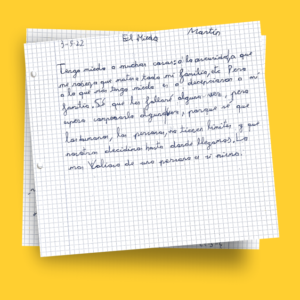 3-3-22 El Miedo Martín
Tengo miedo a muchas cosas: a la oscuridad, a que
me roben, a que maten a toda mi familia, etc. Pero
a lo que más tengo miedo es a decepcionar a mi
familia. Sé que les fallaré alguna vez, pero
espero compensarlo algún día, porque sé que
las personas, no tienen límites y que
nosotros decidimos hasta donde llegamos. Lo
más valioso de una persona es sí mismo.